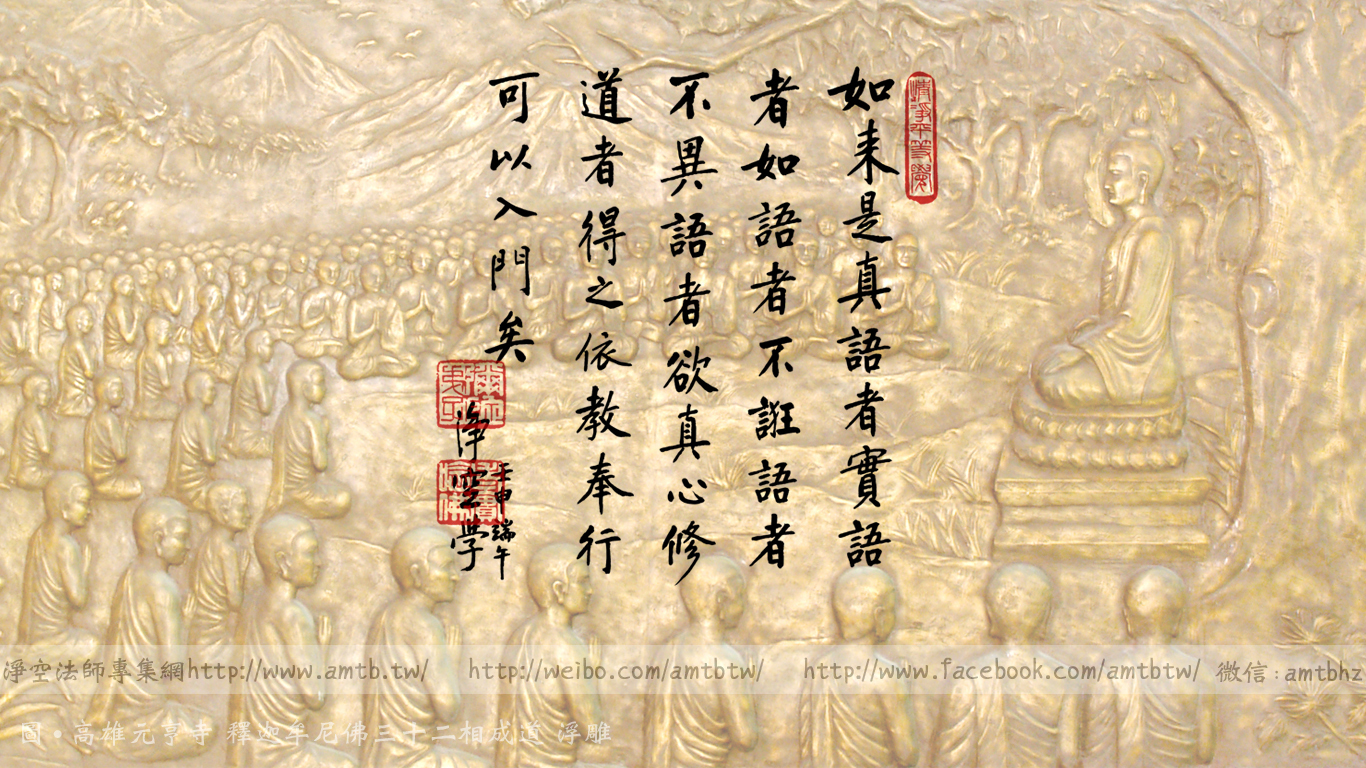 清淨平等覺
如来是真語者實語
者如語者不誑語者
不異語者欲真心修
道者得之依教奉行
可以入門矣
壬申端午
淨空学
淨空法師專集網http://www.amtb.tw/ http://weibo.com/amtbtw/ http://www.facebook.com/amtbtw/ 微信:amtbhz
圖·高雄元亨寺 釋迦牟尼佛三十二相成道 浮雕